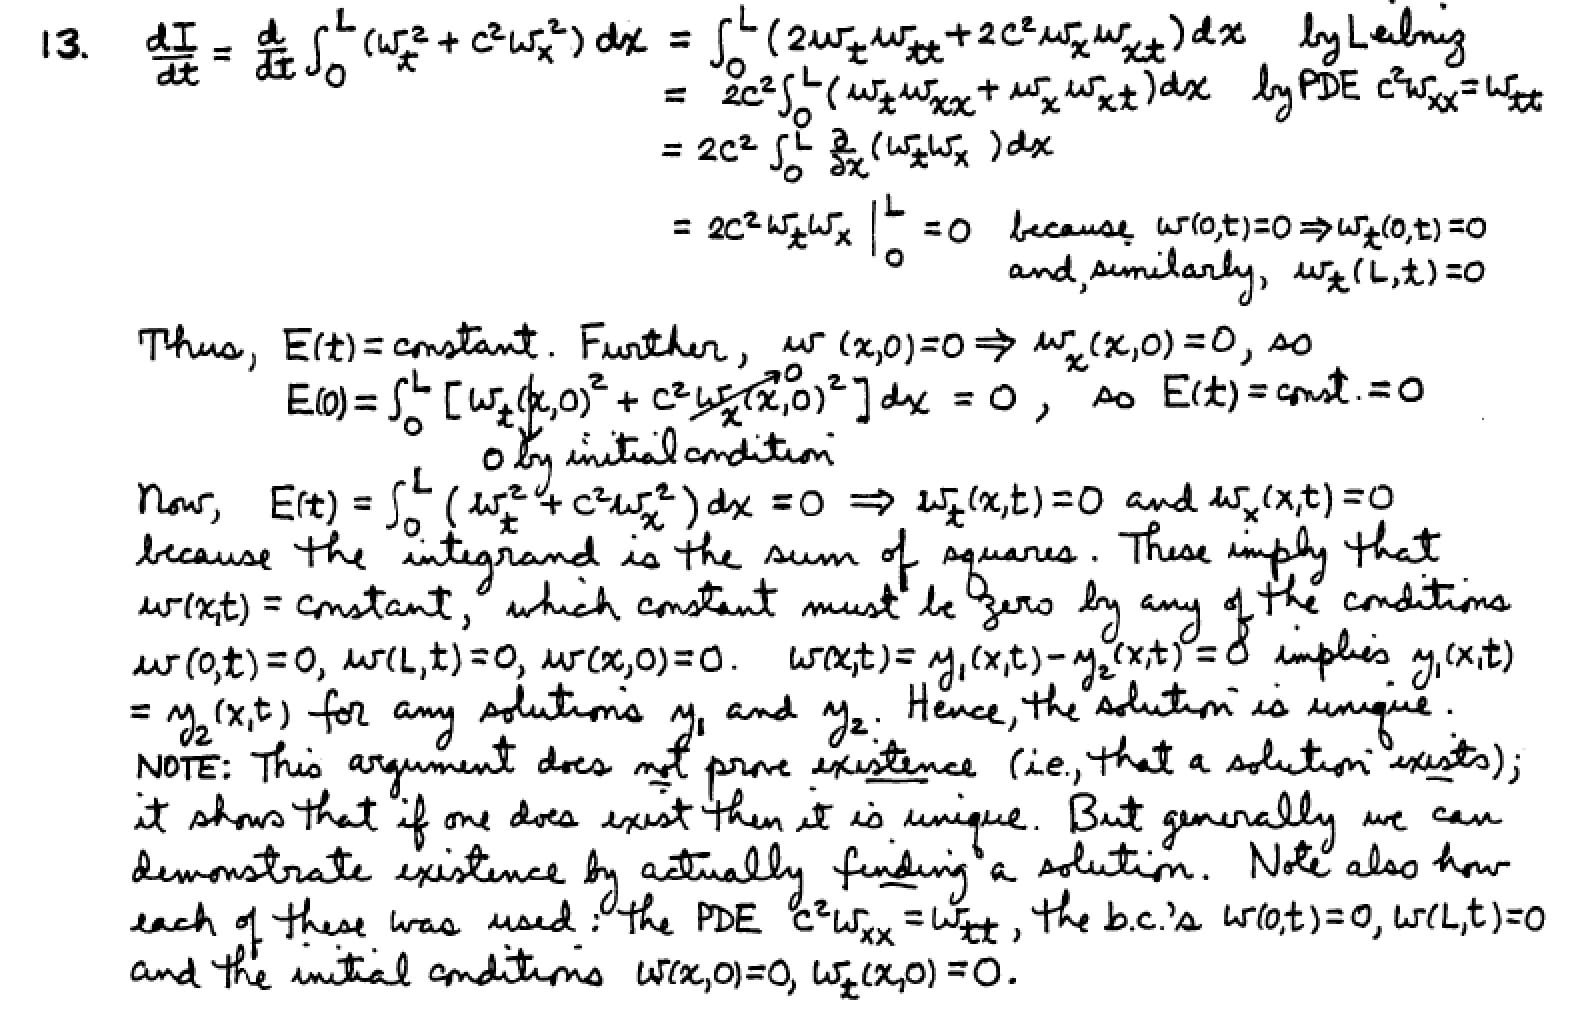 13. dI/dt = d/dt ∫₀ᴸ (w_t² + c²w_x²) dx = ∫₀ᴸ (2w_t w_tt + 2c² w_x w_xt) dx by Leibniz
= 2c² ∫₀ᴸ (w_t w_xx + w_x w_xt) dx by PDE c²w_xx = w_tt
= 2c² ∫₀ᴸ ∂/∂x (w_t w_x ) dx
= 2c² w_t w_x |₀ᴸ = 0 because w(0,t)=0 ⇒ w_t(0,t)=0
and, similarly, w_t(L,t)=0
Thus, E(t) = constant. Further, w (x,0)=0 ⇒ w_x(x,0)=0, so
E(0) = ∫₀ᴸ [w_t(x,0)² + c² w_x(x,0)²] dx = 0 , so E(t) = const. = 0
0
0 by initial condition
Now, E(t) = ∫₀ᴸ (w_t² + c²w_x²) dx = 0 ⇒ w_t(x,t)=0 and w_x(x,t)=0
because the integrand is the sum of squares. These imply that
w(x,t) = constant, which constant must be zero by any of the conditions
w(0,t)=0, w(L,t)=0, w(x,0)=0. w(x,t)= y₁(x,t)-y₂(x,t)=0 implies y₁(x,t)
= y₂(x,t) for any solutions y₁ and y₂. Hence, the solution is unique.
NOTE: This argument does not prove existence (i.e., that a solution exists);
it shows that if one does exist then it is unique. But generally we can
demonstrate existence by actually finding a solution. Note also how
each of these was used: the PDE c²w_xx = w_tt, the b.c.'s w(0,t)=0, w(L,t)=0
and the initial conditions w(x,0)=0, w_t(x,0)=0.